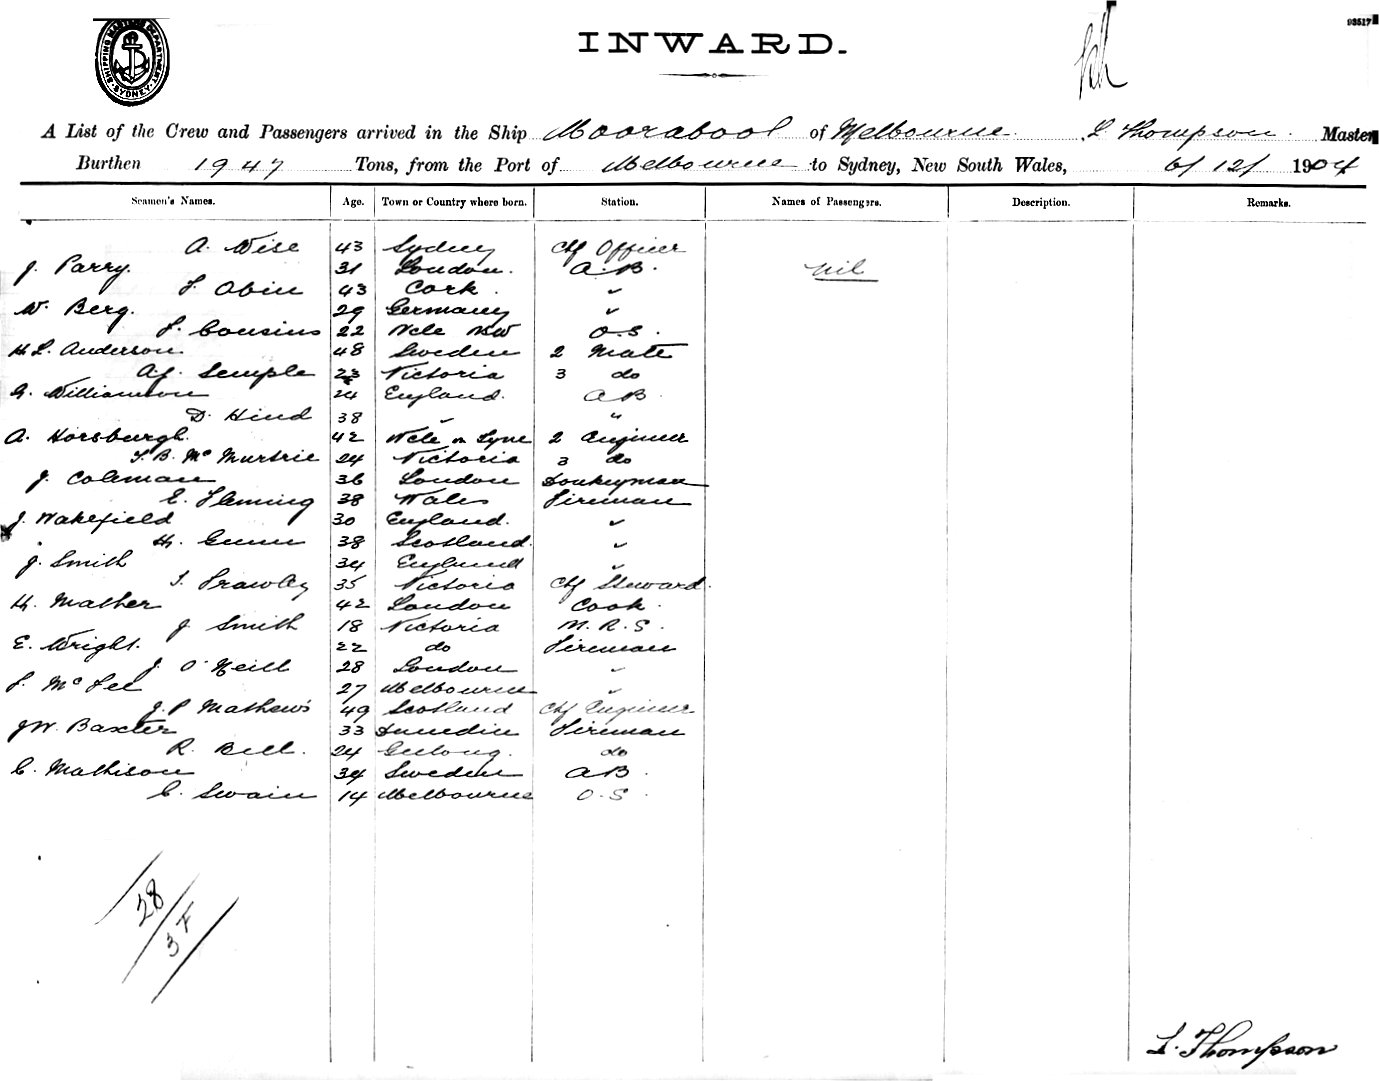 SHIPPING MASTERS DEPARTMENT SYDNEY
INWARD.
93517
A List of the Crew and Passengers arrived in the Ship Moorabool of Melbourne. L Thompson. Master
Burthen 1947 Tons, from the Port of Melbourne to Sydney, New South Wales, 6/12/1904
Seamen's Names. Age. Town or Country where born. Station. Names of Passengers. Description. Remarks.
A. Wise 43 Sydney Chf Officer
J. Parry. 31 London. A.B. nil
43 Cork. "
W. Berg. 29 Germany "
F. Cousins 22 Ncle NSW O.S.
H.L. Anderson 48 Sweden 2 Mate
A.J. Semple 23 Victoria 3 do
G. Williamson 24 England. AB
D. Hind 38 " "
A. Horsburgh. 42 Ncle on Tyne 2 Engineer
T.B. McMurtrie 24 Victoria 3 do
J. Coleman 36 London Donkeyman
E. Fleming 38 Wales Fireman
J. Wakefield 30 England. "
H. Gunn 38 Scotland. "
J. Smith 34 England "
T. Frawley 35 Victoria Chf Steward.
H. Mather 42 London Cook.
J. Smith 18 Victoria M.R.S.
E. Wright. 22 do Fireman
J. O'Neill 28 London "
F. McFee 27 Melbourne "
J.P. Mathews 49 Scotland Chf Engineer
J.W. Baxter 33 Dunedin Fireman
R. Bell. 24 Geelong. do
C. Mathison 34 Sweden AB.
C. Swain 14 Melbourne O.S.
28
3 F
L. Thompson